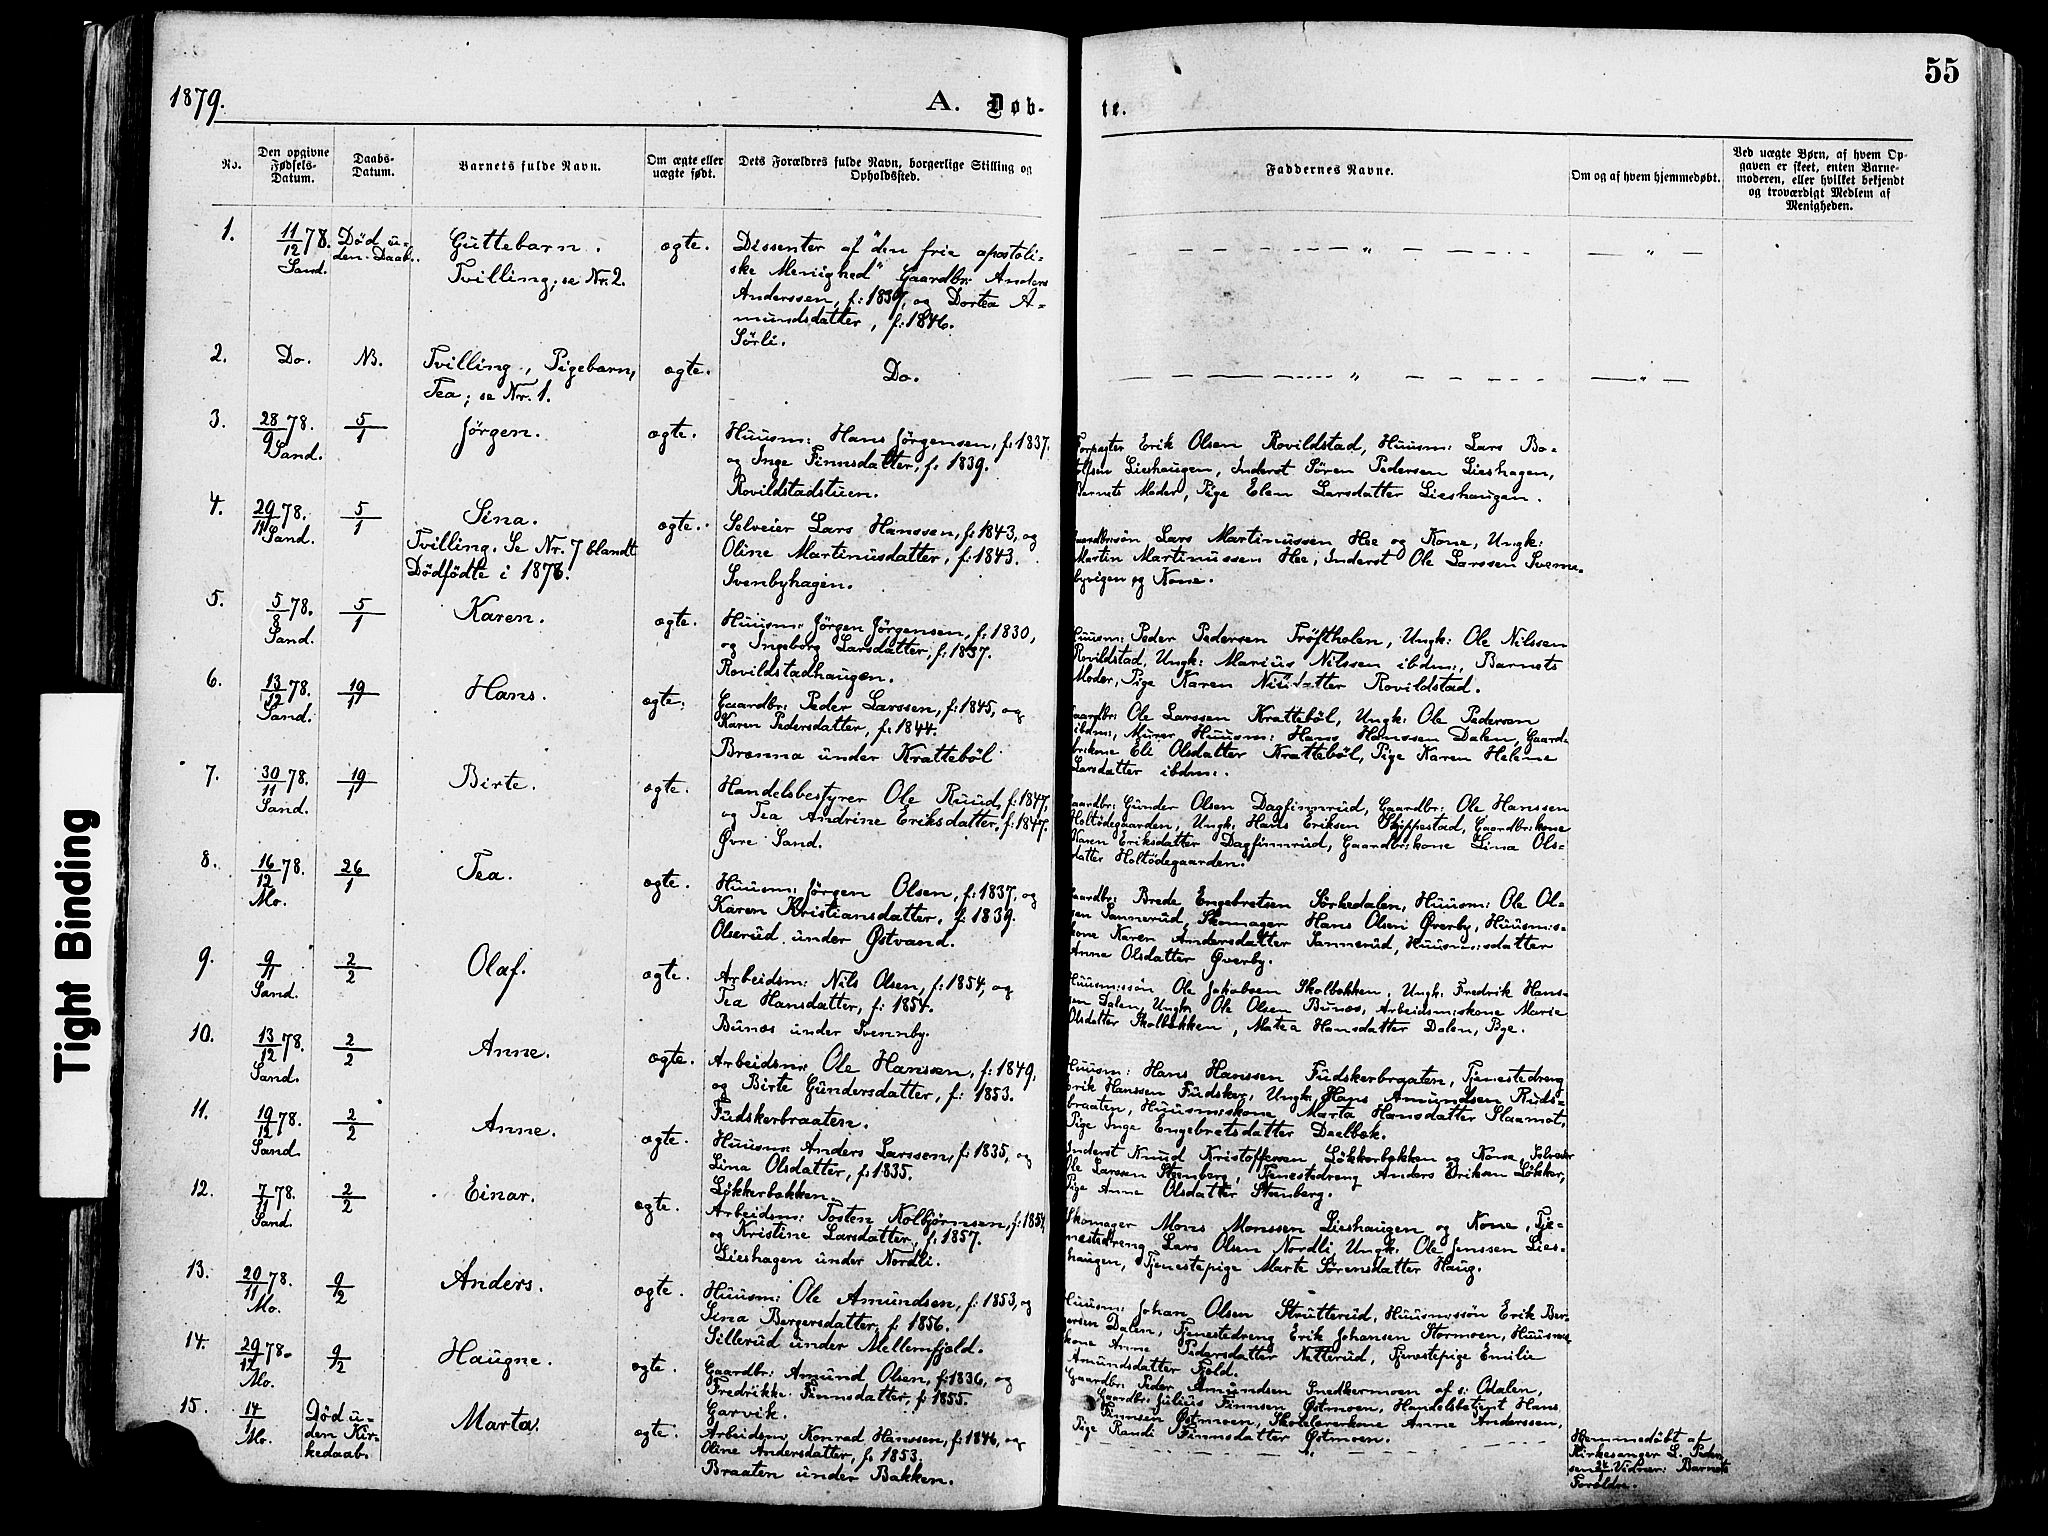 1879.
A. Døb-
te.
55
No.
Den opgivne
Fødsels-
Datum.
Daabs-
Datum.
Barnets fulde Navn.
Om ægte eller
uægte født.
Dets Forældres fulde Navn, borgerlige Stilling og
Opholdssted.
Faddernes Navne.
Om og af hvem hjemmedøbt.
Ved uægte Børn, af hvem Op-
gaven er skeet, enten Barne-
moderen, eller hvilket bekjendt
og troværdigt Medlem af
Menigheden.
1.
11/12 78.
Sand.
Död u-
den Daab.
Guttebarn.
Tvilling; se Nr. 2.
ægte.
Dissenter af "den frie apostoli-
ske Menighed" Gaardbr: Anders
Anderssen, f: 1839, og Dortea A-
mundsdatter, f: 1846.
Sörli.
2.
Do.
NB.
Tvilling, Pigebarn,
Tea; se Nr. 1.
ægte.
Do.
3.
28/9 78.
Sand.
5/1
Jörgen.
ægte.
Huusm: Hans Jörgensen, f: 1837.
og Inge Finnsdatter, f: 1839.
Rovildstadstuen.
Forpagter Erik Olsen Rovildstad, Huusm: Lars Bo-
Lieshaugen, Inderst Sören Pedersen Lieshagen,
Barnets Moder, Pige Elen Larsdatter Lieshaugen.
4.
29/11 78.
Sand.
5/1
Sina.
Tvilling. Se Nr. 7 blandt
Dödfödte i 1878.
ægte.
Selveier Lars Hanssen, f: 1843, og
Oline Martinusdatter, f: 1843.
Svenbyhagen.
Gaardbrsön Lars Martinussen Hee og Kone, Ungk:
Martin Martinussen Hee, Inderst Ole Larssen Svenne-
byvigen og Kone.
5.
5/8 78.
Sand.
5/1
Karen.
ægte.
Huusm: Jörgen Jörgensen, f: 1830,
og Ingeborg Larsdatter, f: 1837.
Rovildstadhaugen.
Huusm: Peder Pedersen Tröftholen, Ungk: Ole Nilssen
Rovildstad, Ungk: Marius Nilssen ibdm:, Barnets
Moder, Pige Karen Nilsdatter Rovildstad.
6.
13/12 78.
Sand.
19/1
Hans.
ægte.
Gaardbr: Peder Larssen, f: 1845, og
Karen Pedersdatter, f: 1844.
Brænna under Kratteböl
Gaardbr: Ole Larssen Kratteböl, Ungk: Ole Pedersen
ibdm:, Murer Huusm: Hans Hanssen Dalen, Gaard-
brkone Eli Olsdatter Kratteböl, Pige Karen Helene
Larsdatter ibdm:.
7.
30/11 78.
Sand.
19/1
Birte.
ægte.
Handelsbestyrer Ole Ruud, f: 1847,
og Tea Andrine Eriksdatter, f: 1847.
Øvre Sand.
Gaardbr: Gunder Olsen Dagfinnrud, Gaardbr: Ole Hanssen
Holtödegaarden, Ungk: Hans Eriksen Skippestad, Gaardbrkone
Karen Eriksdatter Dagfinnrud, Gaardbrkone Lina Ols-
datter Holtödegaarden.
8.
16/12 78.
Mo.
26/1
Tea.
ægte.
Huusm: Jörgen Olsen, f: 1837, og
Karen Kristiansdatter, f: 1839.
Olserud under Østvand.
Gaardbr: Brede Engebretsen Sörkedalen, Huusm: Ole Ol-
sen Sannerud, Skomager Hans Olsen Øverby, Huusm:s-
kone Karen Andersdatter Sannerud, Huusm:sdatter
Anne Olsdatter Øverby.
9.
9/11
Sand.
2/2
Olaf.
ægte.
Arbeidsm: Nils Olsen, f: 1854, og
Tea Hansdatter, f: 1854.
Bunæs under Svennby.
Huusm:sön Ole Jakobsen Skolbækken, Ungk: Fredrik Hans-
sen Dalen, Ungk: Ole Olsen Bunæs, Arbeidsm:skone Marie
Olsdatter Skolbækken, Matea Hansdatter Dalen, Pige.
10.
13/12 78.
Sand.
2/2
Anne.
ægte.
Arbeidsm: Ole Hanssen, f: 1849,
og Birte Gundersdatter, f: 1853.
Fudskerbraaten.
Huusm: Hans Hanssen Fudskerbraaten, Tjenestedreng
Erik Hanssen Fudsker, Ungk: Hans Amundsen Ruds-
braaten, Huusm:skone Marta Hansdatter Slaamot,
Pige Inge Engebretsdatter Dælbæk.
11.
19/12 78.
Sand.
2/2
Anne.
ægte.
Huusm: Anders Larssen, f: 1835, og
Lina Olsdatter, f: 1835.
Lökkerbakken.
Inderst Knud Kristoffersen Lökkerbakken og Kone, Selveier
Ole Larssen Stenberg, Tjenestedreng Anders Eriksen Lökker,
Pige Anne Olsdatter Stenberg.
12.
7/11 78.
Sand.
2/2
Einar.
ægte.
Arbeidsm: Tosten Kolbjörnsen, f: 1854
og Kristine Larsdatter, f: 1857.
Lieshagen under Nordli.
Skomager Mons Monssen Lieshaugen og Kone, Tje-
nestedreng Lars Olsen Nordli, Ungk: Ole Jenssen Lies-
haugen, Tjenestepige Marte Sörensdatter Haug.
13.
20/11 78.
Mo.
9/2
Anders.
ægte.
Huusm: Ole Amundsen, f: 1853, og
Sina Bergersdatter, f: 1856.
Sillerud under Mellemfjeld.
Huusm: Johan Olsen Strutterud, Huusm:sön Erik Ber-
gersen Dalen, Tjenestedreng Erik Johansen Stormoen, Huusms-
kone Anne Pedersdatter Netterud, Tjenestepige Emilie
Amundsdatter Fjeld.
14.
29/12 78.
Mo.
9/2
Haugne.
ægte.
Gaardbr: Amund Olsen, f: 1836, og
Fredrikke Finnsdatter, f: 1855.
Garvik.
Gaardbr: Peder Amundsen Snedkermoen af s: Odalen,
Gaardbr: Julius Finnsen Østmoen, Handelsbetjent Hans
Finnsen Østmoen, Skolelærerkone Anne Anderssen,
Pige Randi Finnsdatter Østmoen.
15.
14/1
Mo.
Död u-
den Kir-
kedaab.
Marta.
ægte.
Arbeidsm: Konrad Hanssen, f: 1846, og
Oline Andersdatter, f: 1853.
Braaten under Bakken.
Hjemmedöbt af
Kirkesanger L. Peder-
sen Vidner: Barnets
Forældre.
Tight Binding